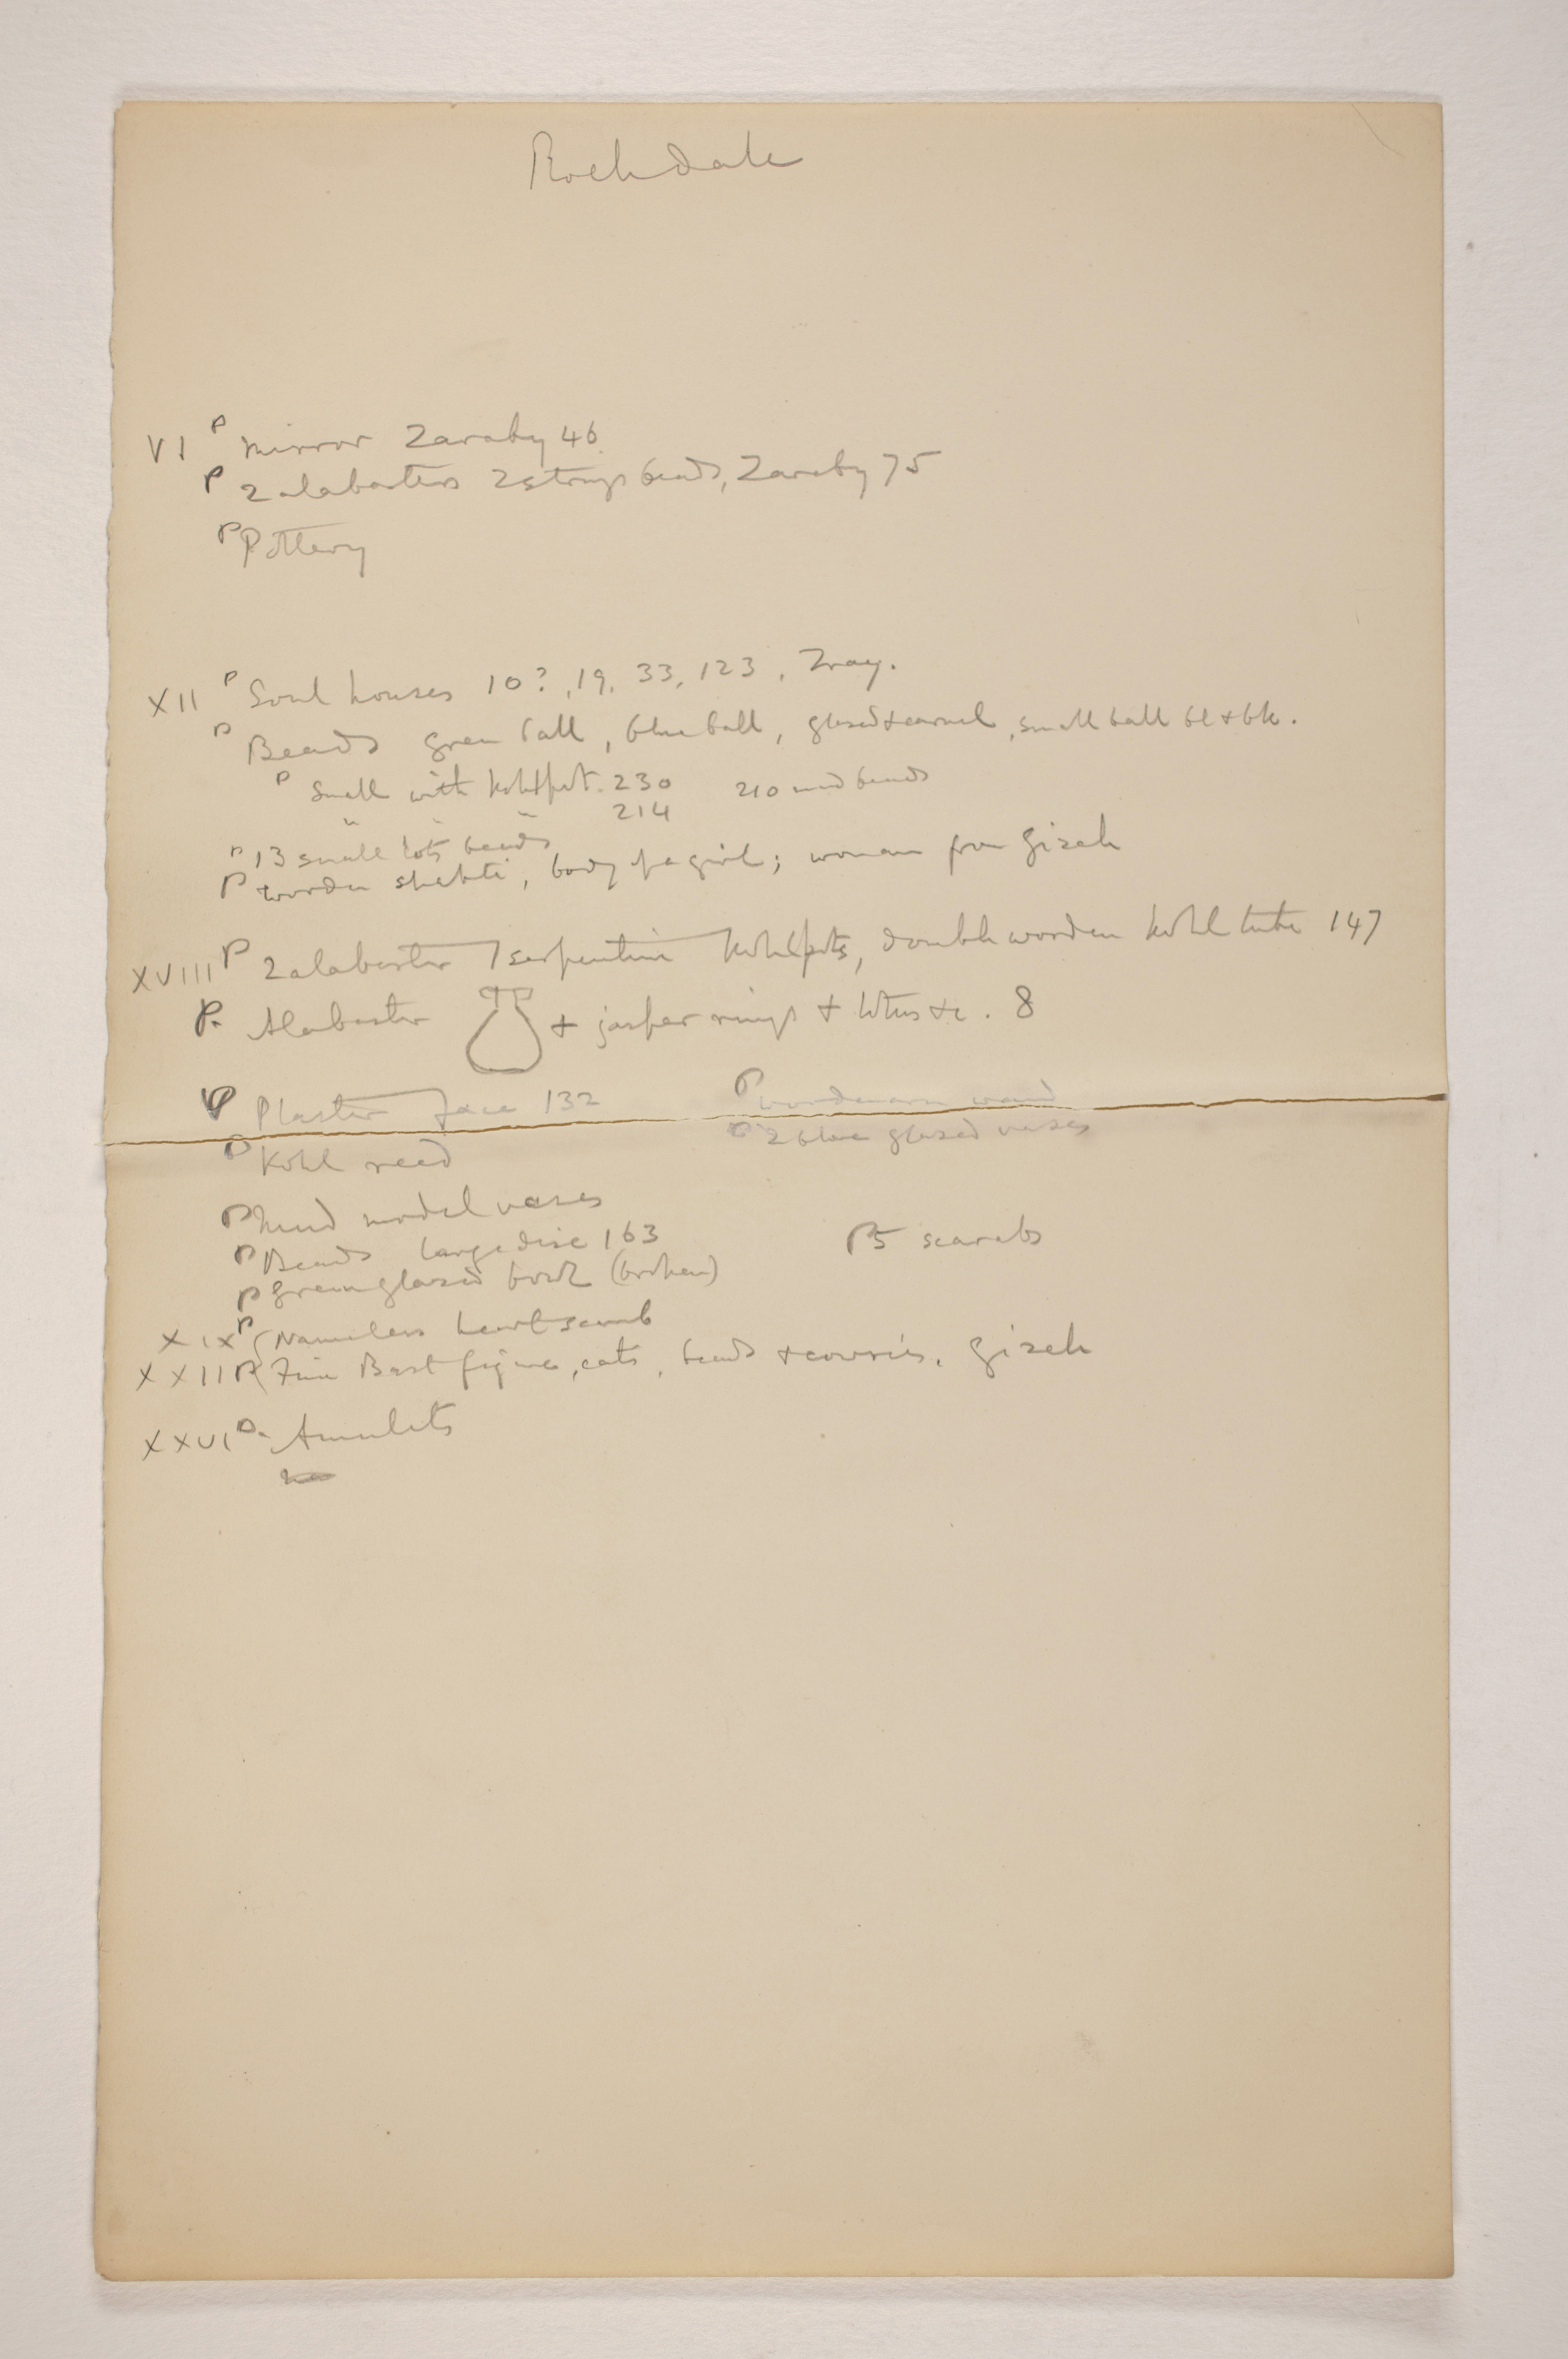 Rochdale
VI P Mirror Zaraby 46
P 2 alabasters 2 strings beads, Zaraby 75
P Pottery
XII P Soul houses 10?, 19, 33, 123,
P Beads green ball, blue ball, glazed & carnel, small ball bl & bk.
P Small with Kohlpot. 230 210 mud beads
" " " 214
P 13 small lots beads
P wooden shabti, body of a girl; woman from Gizeh
XVIII P 2 alabaster 1 serpentine Kohlpots, double wooden Kohl tube 147
P. Alabaster & jasper rings & lotus &c. 8
P Plaster face 132 P wooden arm wand
P Kohl reed P 2 blue glazed vases
P Mud model vases
P Beads large disc 163 P 5 scarabs
P Green glazed bowl (broken)
XIX P Nameless heart scarab
XXII P Fine Bast figures, cats, beads & cowries. Gizeh
XXVI P. Amulets